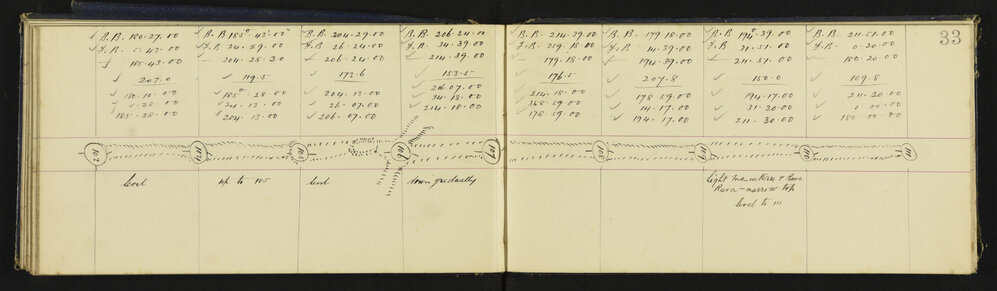 33
B.B. 180.27.00
F.B. 5.43.00
185.43.00
203.0
180.10.00
5.28.00
185.28.00
B.B 185°.43.00"
F.B 24.29.00
204.28.30
119.5
185°.28.00
24.13.00
204.13.00
B.B. 204.29.00
F.B 26.24.00
206.24.00
173.6
204.13.00
26.07.00
206.07.00
B.B. 206.24.00
F.B. 34.39.00
214.39.00
153.5
206.07.00
34.18.00
214.18.00
B.B. 214.39.00
F.B. 359.18.00
179.18.00
176.5
214.18.00
358.59.00
178.59.00
B.B. 179.18.00
F.B. 14.39.00
194.39.00
207.8
178.59.00
14.17.00
194.17.00
B.B 194°.39.00
F.B. 31.51.00
211.51.00
150.0
194.17.00
31.30.00
211.30.00
B.B. 211.51.00
F.B. 0.20.00
180.20.00
109.8
211.30
0.00.00
180.00.00
103
104
105
106
107
108
109
110
111
level
up to 105
level
down gradually
Light Manukau & Rura
Rura - narrow top
level to 111